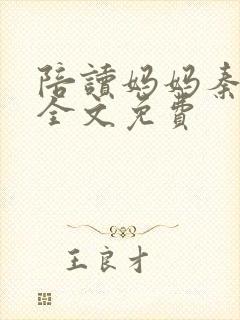 陪讀妈妈秦
全文免費
王良才